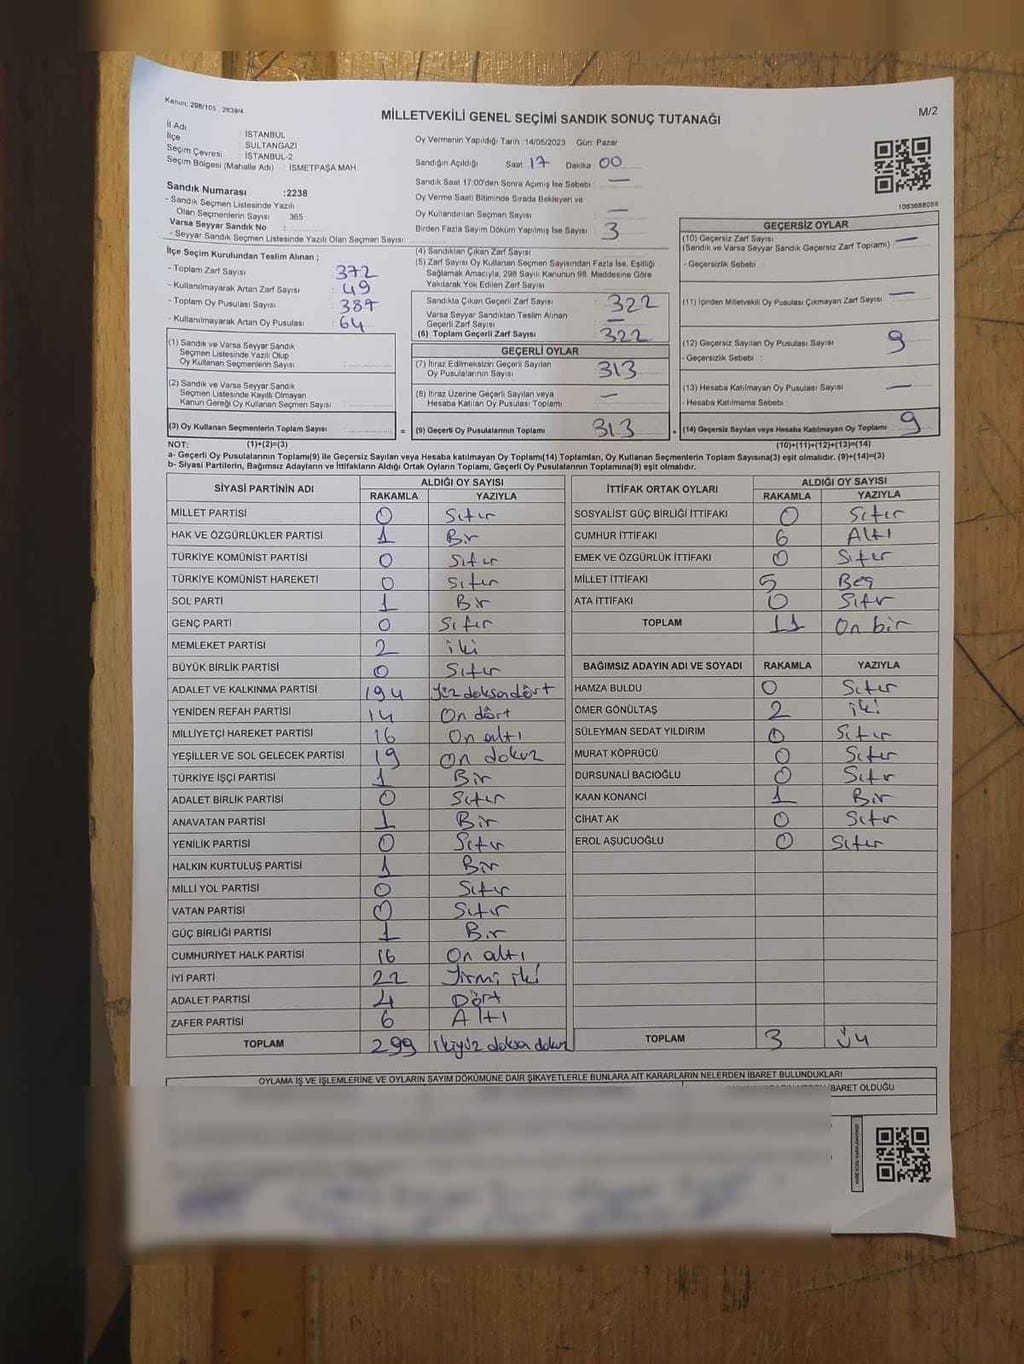 Kanun; 298/105 , 2839/4
MİLLETVEKİLİ GENEL SEÇİMİ SANDIK SONUÇ TUTANAĞI
M/2
İl Adı İSTANBUL
İlçe SULTANGAZİ
Seçim Çevresi İSTANBUL-2
Seçim Bölgesi (Mahalle Adı) : İSMETPAŞA MAH.
Sandık Numarası :2238
- Sandık Seçmen Listesinde Yazılı
Olan Seçmenlerin Sayısı 365
Varsa Seyyar Sandık No :
- Seyyar Sandık Seçmen Listesinde Yazılı Olan Seçmen Sayısı
İlçe Seçim Kurulundan Teslim Alınan ;
- Toplam Zarf Sayısı 372
- Kullanılmayarak Artan Zarf Sayısı : 49
- Toplam Oy Pusulası Sayısı : 387
- Kullanılmayarak Artan Oy Pusulası : 64
(1) Sandık ve Varsa Seyyar Sandık
Seçmen Listesinde Yazılı Olup
Oy Kullanan Seçmenlerin Sayısı :
(2) Sandık ve Varsa Seyyar Sandık
Seçmen Listesinde Kayıtlı Olmayan
Kanun Gereği Oy Kullanan Seçmen Sayısı :
(3) Oy Kullanan Seçmenlerin Toplam Sayısı :
Oy Vermenin Yapıldığı Tarih :14/05/2023 Gün: Pazar
Sandığın Açıldığı Saat 17 Dakika 00
Sandık Saat 17:00'den Sonra Açımış İse Sebebi : —
Oy Verme Saati Bitiminde Sırada Bekleyen ve
Oy Kullandırılan Seçmen Sayısı : —
Birden Fazla Sayım Döküm Yapılmış İse Sayısı : 3
(4) Sandıktan Çıkan Zarf Sayısı
(5) Zarf Sayısı Oy Kullanan Seçmen Sayısından Fazla İse, Eşitliği
Sağlamak Amacıyla, 298 Sayılı Kanunun 98. Maddesine Göre
Yakılarak Yok Edilen Zarf Sayısı :
Sandıkta Çıkan Geçerli Zarf Sayısı : 322
Varsa Seyyar Sandıktan Teslim Alınan
Geçerli Zarf Sayısı : —
(6) Toplam Geçerli Zarf Sayısı : 322
GEÇERLİ OYLAR
(7) İtiraz Edilmeksizin Geçerli Sayılan
Oy Pusulalarının Sayısı : 313
(8) İtiraz Üzerine Geçerli Sayılan veya
Hesaba Katılan Oy Pusulası Toplamı : —
= (9) Geçerli Oy Pusulalarının Toplamı : 313
1083688059
GEÇERSİZ OYLAR
(10) Geçersiz Zarf Sayısı
(Sandık ve Varsa Seyyar Sandık Geçersiz Zarf Toplamı) : —
- Geçersizlik Sebebi :
(11) İçinden Milletvekili Oy Pusulası Çıkmayan Zarf Sayısı : —
(12) Geçersiz Sayılan Oy Pusulası Sayısı : 9
- Geçersizlik Sebebi :
(13) Hesaba Katılmayan Oy Pusulası Sayısı : —
- Hesaba Katılmama Sebebi :
+ (14) Geçersiz Sayılan veya Hesaba Katılmayan Oy Toplamı : 9
NOT: (1)+(2)=(3) (10)+(11)+(12)+(13)=(14)
a- Geçerli Oy Pusulalarının Toplamı(9) ile Geçersiz Sayılan veya Hesaba katılmayan Oy Toplamı(14) Toplamları, Oy Kullanan Seçmenlerin Toplam Sayısına(3) eşit olmalıdır. (9)+(14)=(3)
b- Siyasi Partilerin, Bağımsız Adayların ve İttifakların Aldığı Ortak Oyların Toplamı, Geçerli Oy Pusulalarının Toplamına(9) eşit olmalıdır.
SİYASİ PARTİNİN ADI ALDIĞI OY SAYISI
RAKAMLA YAZIYLA
MİLLET PARTİSİ 0 Sıfır
HAK VE ÖZGÜRLÜKLER PARTİSİ 1 Bir
TÜRKİYE KOMÜNİST PARTİSİ 0 Sıfır
TÜRKİYE KOMÜNİST HAREKETİ 0 Sıfır
SOL PARTİ 1 Bir
GENÇ PARTİ 0 Sıfır
MEMLEKET PARTİSİ 2 iki
BÜYÜK BİRLİK PARTİSİ 0 Sıfır
ADALET VE KALKINMA PARTİSİ 194 Yüz doksandört
YENİDEN REFAH PARTİSİ 14 On dört
MİLLİYETÇİ HAREKET PARTİSİ 16 On altı
YEŞİLLER VE SOL GELECEK PARTİSİ 19 On dokuz
TÜRKİYE İŞÇİ PARTİSİ 1 Bir
ADALET BİRLİK PARTİSİ 0 Sıfır
ANAVATAN PARTİSİ 1 Bir
YENİLİK PARTİSİ 0 Sıfır
HALKIN KURTULUŞ PARTİSİ 1 Bir
MİLLİ YOL PARTİSİ 0 Sıfır
VATAN PARTİSİ 0 Sıfır
GÜÇ BİRLİĞİ PARTİSİ 1 Bir
CUMHURİYET HALK PARTİSİ 16 On altı
İYİ PARTİ 22 Yirmi iki
ADALET PARTİSİ 4 Dört
ZAFER PARTİSİ 6 Altı
TOPLAM 299 ikiyüz doksan dokuz
İTTİFAK ORTAK OYLARI ALDIĞI OY SAYISI
RAKAMLA YAZIYLA
SOSYALİST GÜÇ BİRLİĞİ İTTİFAKI 0 Sıfır
CUMHUR İTTİFAKI 6 Altı
EMEK VE ÖZGÜRLÜK İTTİFAKI 0 Sıfır
MİLLET İTTİFAKI 5 Beş
ATA İTTİFAKI 0 Sıfır
TOPLAM 11 On bir
BAĞIMSIZ ADAYIN ADI VE SOYADI RAKAMLA YAZIYLA
HAMZA BULDU 0 Sıfır
ÖMER GÖNÜLTAŞ 2 iki
SÜLEYMAN SEDAT YILDIRIM 0 Sıfır
MURAT KÖPRÜCÜ 0 Sıfır
DURSUNALİ BACIOĞLU 0 Sıfır
KAAN KONANCİ 1 Bir
CİHAT AK 0 Sıfır
EROL AŞUCUOĞLU 0 Sıfır
TOPLAM 3 üç
OYLAMA İŞ VE İŞLEMLERİNE VE OYLARIN SAYIM DÖKÜMÜNE DAİR ŞİKAYETLERLE BUNLARA AİT KARARLARIN NELERDEN İBARET BULUNDUKLARI
İBARET OLDUĞU